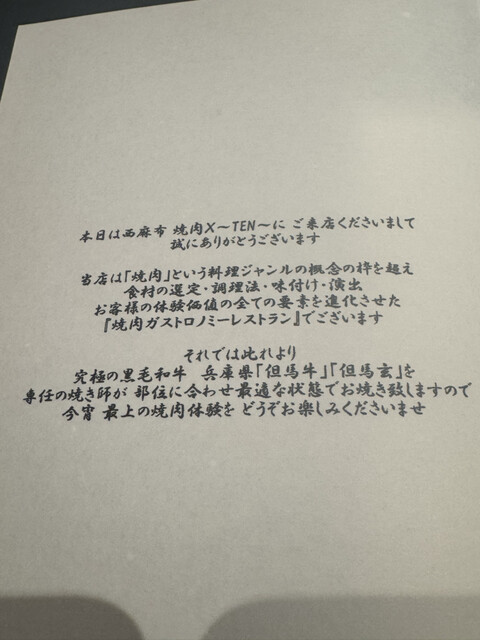 本日は西麻布 焼肉X〜TEN〜に ご来店くださいまして
誠にありがとうございます
当店は「焼肉」という料理ジャンルの概念の枠を超え
食材の選定・調理法・味付け・演出
お客様の体験価値の全ての要素を進化させた
『焼肉ガストロノミーレストラン』でございます
それでは此れより
究極の黒毛和牛 兵庫県「但馬牛」「但馬玄」を
専任の焼き師が 部位に合わせ最適な状態でお焼き致しますので
今宵 最上の焼肉体験を どうぞお楽しみくださいませ